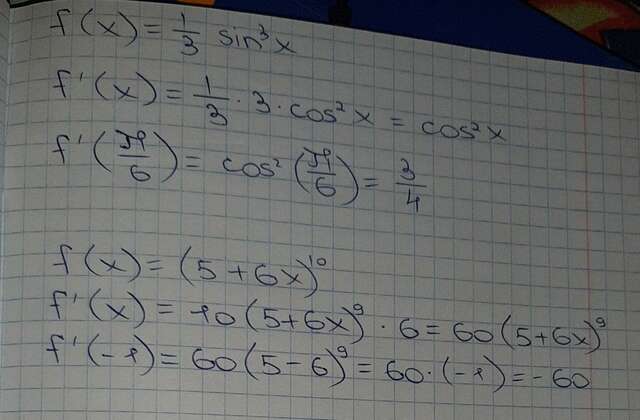 f(x) = 1/3 sin³x
f'(x) = 1/3 · 3 · cos²x = cos²x
f'(π/6) = cos²(π/6) = 3/4
f(x) = (5+6x)¹⁰
f'(x) = 10(5+6x)⁹ · 6 = 60(5+6x)⁹
f'(-1) = 60(5-6)⁹ = 60·(-1) = -60